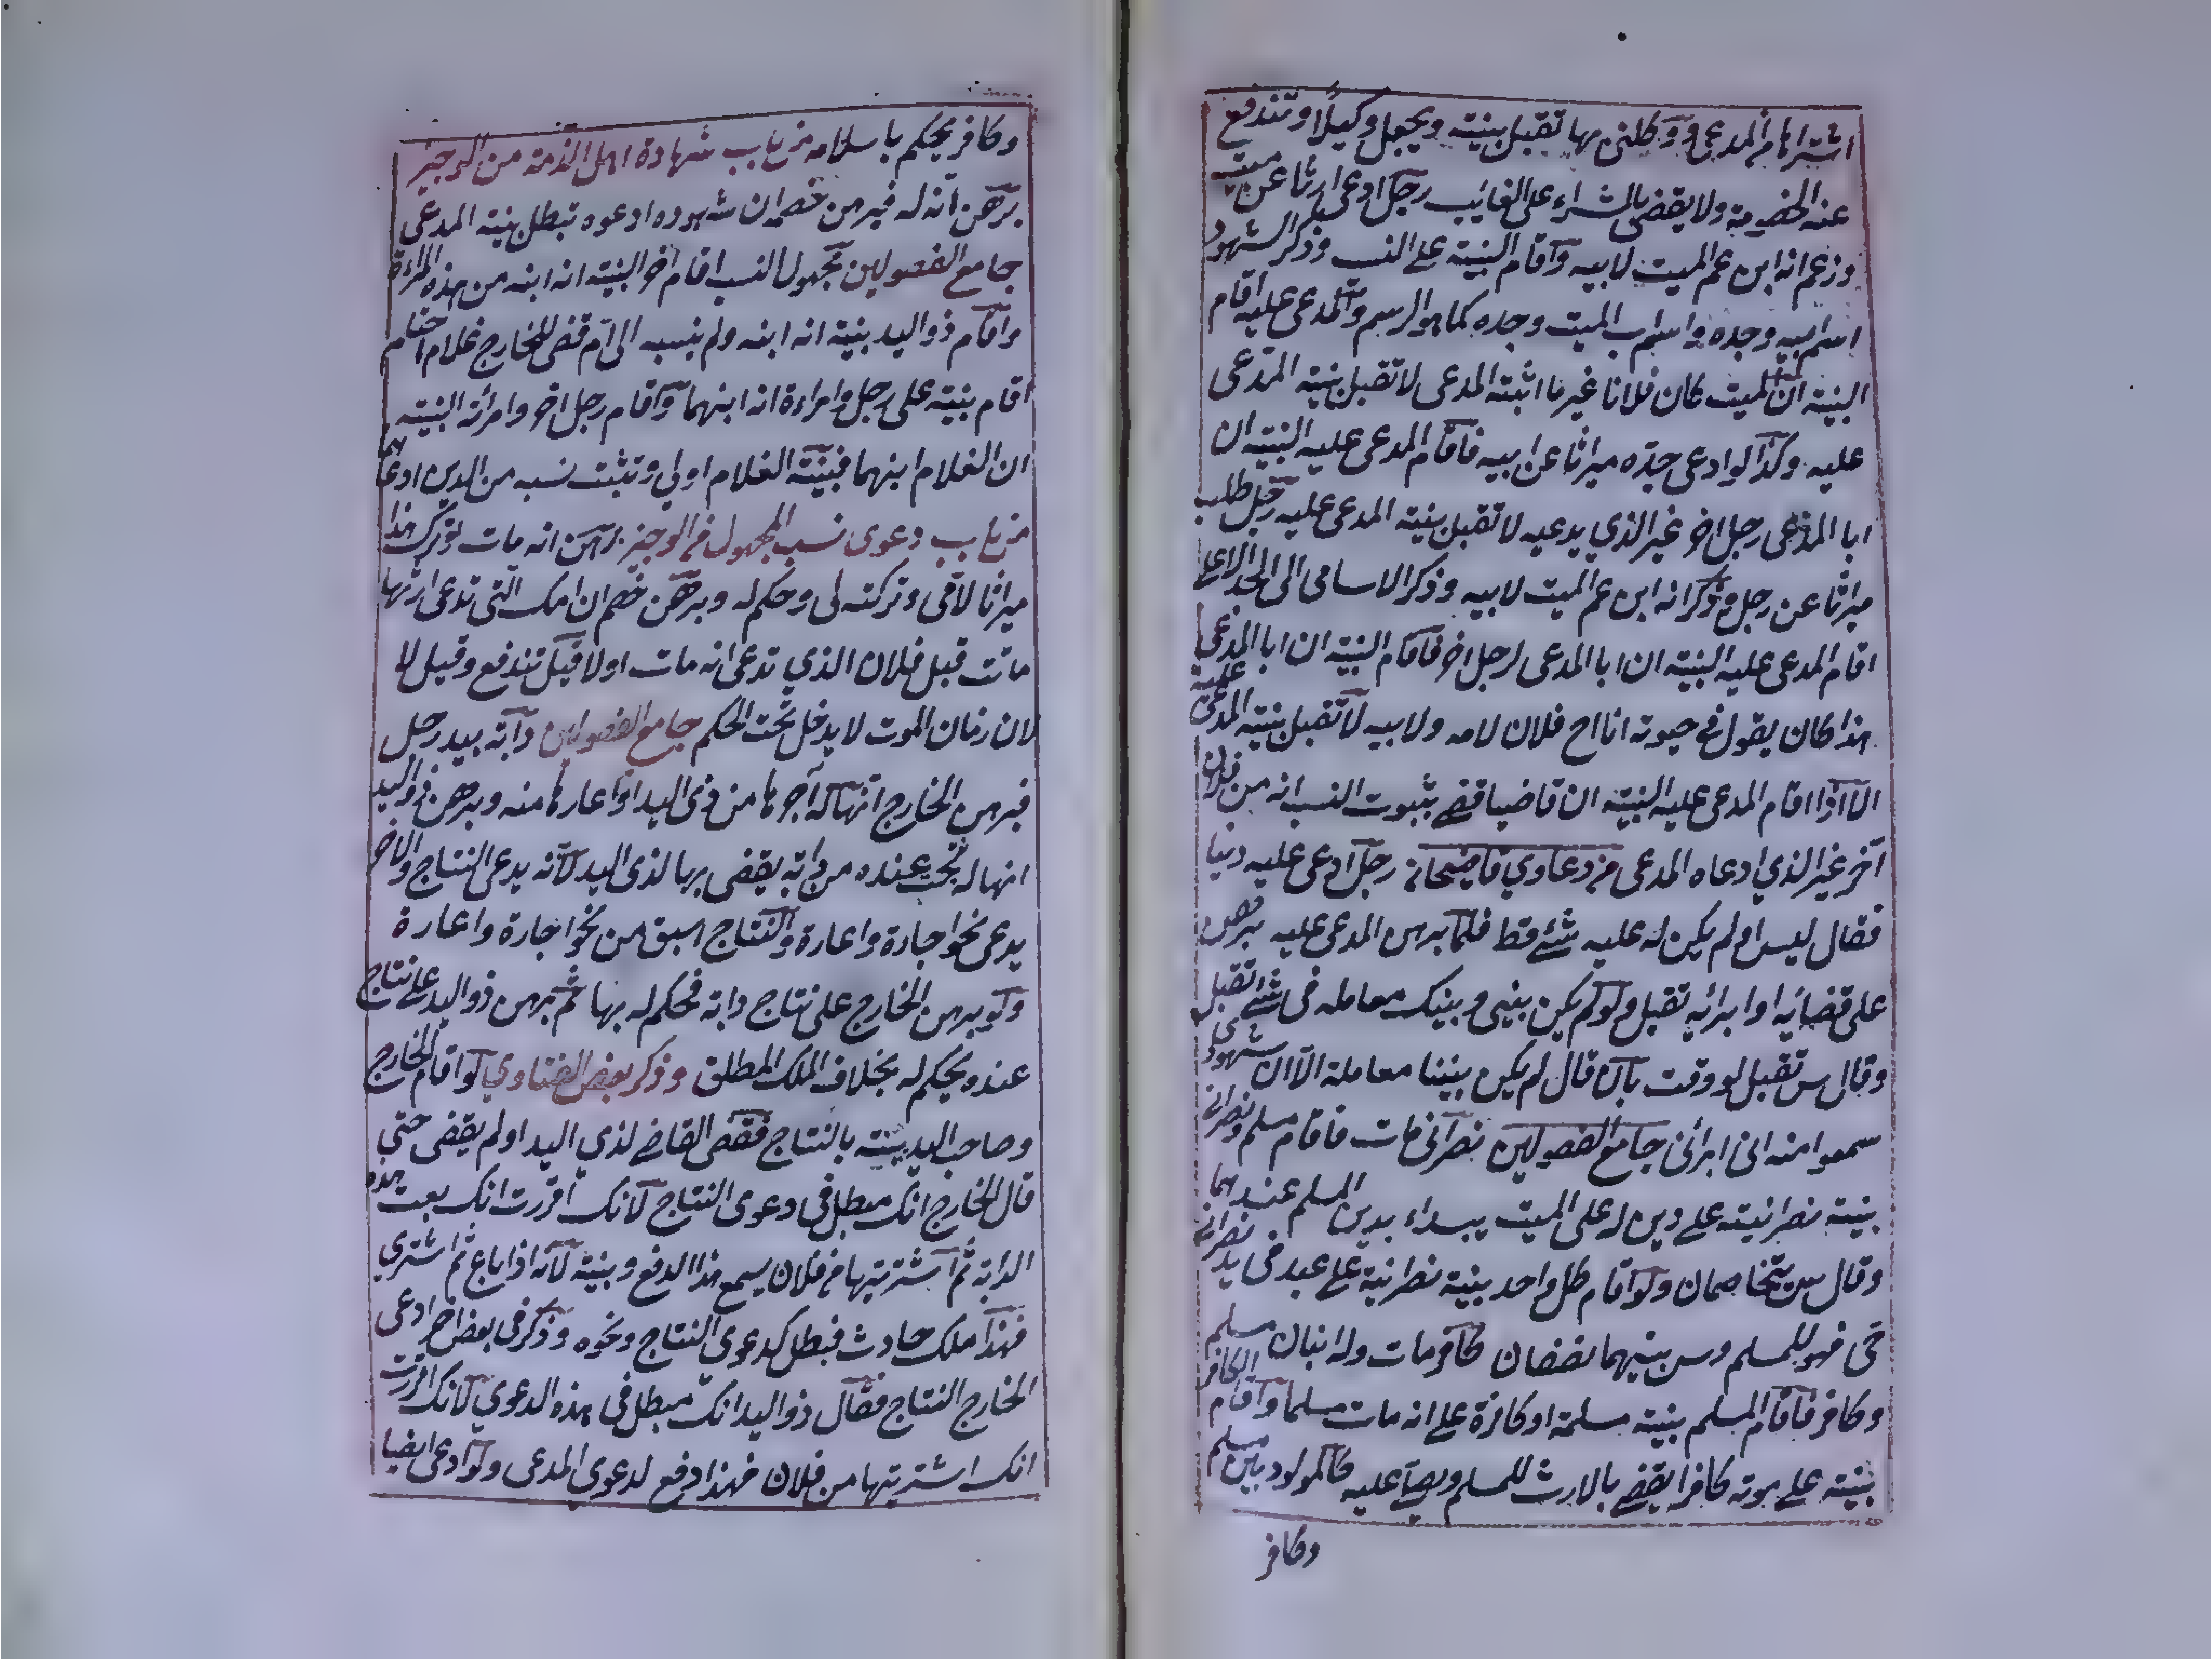 اشتراها من المدعى ووكلنى بها تقبل بينته ويجعل وكيلا وتندفع
عنه الخصومة ولا يقضى بالشراء على الغائب رجل ادعى ارثا عن ميت
وزعم انه ابن عم الميت لابيه واقام البينة على النسب وذكر الشهود
اسم ابيه وجده واسم اب الميت وجده كما هو الرسم والمدعى عليه اقام
البينة ان الميت كان فلانا غير ما اثبته المدعى لا تقبل بينة المدعى
عليه وكذا لو ادعى جده ميراثا عن ابيه فاقام المدعى عليه البينة ان
ابا المدعى رجل اخر غير الذي يدعيه لا تقبل بينة المدعى عليه رجل طلب
ميراثا عن رجل وذكر انه ابن عم الميت لابيه وذكر الاسامى الى الجد الاعلى
اقام المدعى عليه البينة ان ابا المدعى لرجل اخر فاقام البينة ان ابا المدعى
هذا كان يقول في حيوته انا اخ فلان لامه ولا بيه لا تقبل بينة المدعى عليه
الا اذا اقام المدعى عليه البينة ان قاضيا قضى بثبوت النسب انه من فلان
آخر غير الذي ادعاه المدعى من دعاوي قاضيخان رجل ادعى عليه دنيا
فقال ليس او لم يكن له عليه شئ قط فلما برهن المدعى عليه برهن
على قضائه او ابرائه تقبل ولو لم يكن بينى وبينك معامله فى شئ تقبل
وقال س تقبل لو وقت بان قال لم يكن بيننا معاملة الا ان شهودى
سمعوا منه انى ابرائى جامع الفصولين نصرانى مات فاقام مسلم ونصرانى
بينة نصرانية على دين له على الميت يبداء بدين المسلم عندهما
وقال س يتخاصمان ولو اقام كل واحد بينة نصرانية على عبد فى يد نصرانى
حى فهو للمسلم وس بينهما نصفان كافر مات وله ابنان مسلم
وكافر فاقام المسلم بينة مسلمة او كافرة على انه مات مسلما واقام الكافر
بينة على موته كافرا يقضى بالارث للمسلم ويصلى عليه كالمولود بين مسلم
وكافر
وكافر يحكم باسلامه من باب شهادة اهل الذمة من الوجيز
برهن انه له فبرهن خصمه ان شهوده ادعوه تبطل بينة المدعى
جامع الفصولين مجهول النسب اقام اخر البينة انه ابنه من هذه المراءة
واقام ذو اليد بينة انه ابنه ولم ينسبه الى ام قضى للخارج غلام احتلم
اقام بينة على رجل وامراءة انه ابنهما واقام رجل اخر وامرأته البينة
ان الغلام ابنهما فبينة الغلام اولى وتثبت نسبه من الدين ادعاهما
من باب دعوى نسب المجهول فى الوجيز برهن انه مات وترك هذا
ميراثا لامى وتركته لى وحكم له وبرهن خصم ان امك التى تدعى ارثها
ماتت قبل فلان الذي تدعى انه مات اولا قيل تندفع وقيل لا
لان زمان الموت لا يدخل تحت الحكم جامع الفصولين دابة بيد رجل
فبرهن الخارج انها له آجرها من ذى اليد او اعارها منه وبرهن ذو اليد
انها له نتجت عنده من دابة يقضى بها لذى اليد لانه يدعى النتاج والاخر
يدعى نحو اجارة واعارة والنتاج اسبق من نحو اجارة واعارة
ولو برهن الخارج على نتاج دابة فحكم له بها ثم برهن ذو اليد على نتاج
عنده يحكم له بخلاف الملك المطلق وذكر بعض الفتاوي لو اقام الخارج
وصاحب اليد بينة بالنتاج فقضى القاضي لذي اليد او لم يقضى حتى
قال الخارج انك مبطل فى دعوى النتاج لانك اقررت انك بعت هذه
الدابة ثم اشتريتها من فلان يسمع هذا الدفع وبينة لانه اذا باع ثم اشتري
فهذا ملك حادث فبطل كدعوي النتاج ونحوه وذكر فى بعض اخر ادعى
الخارج النتاج فقال ذو اليد انك مبطل فى هذه الدعوي لانك اقررت
انك اشتريتها من فلان فهذا دفع لدعوي المدعى ولو ادعى ايضا